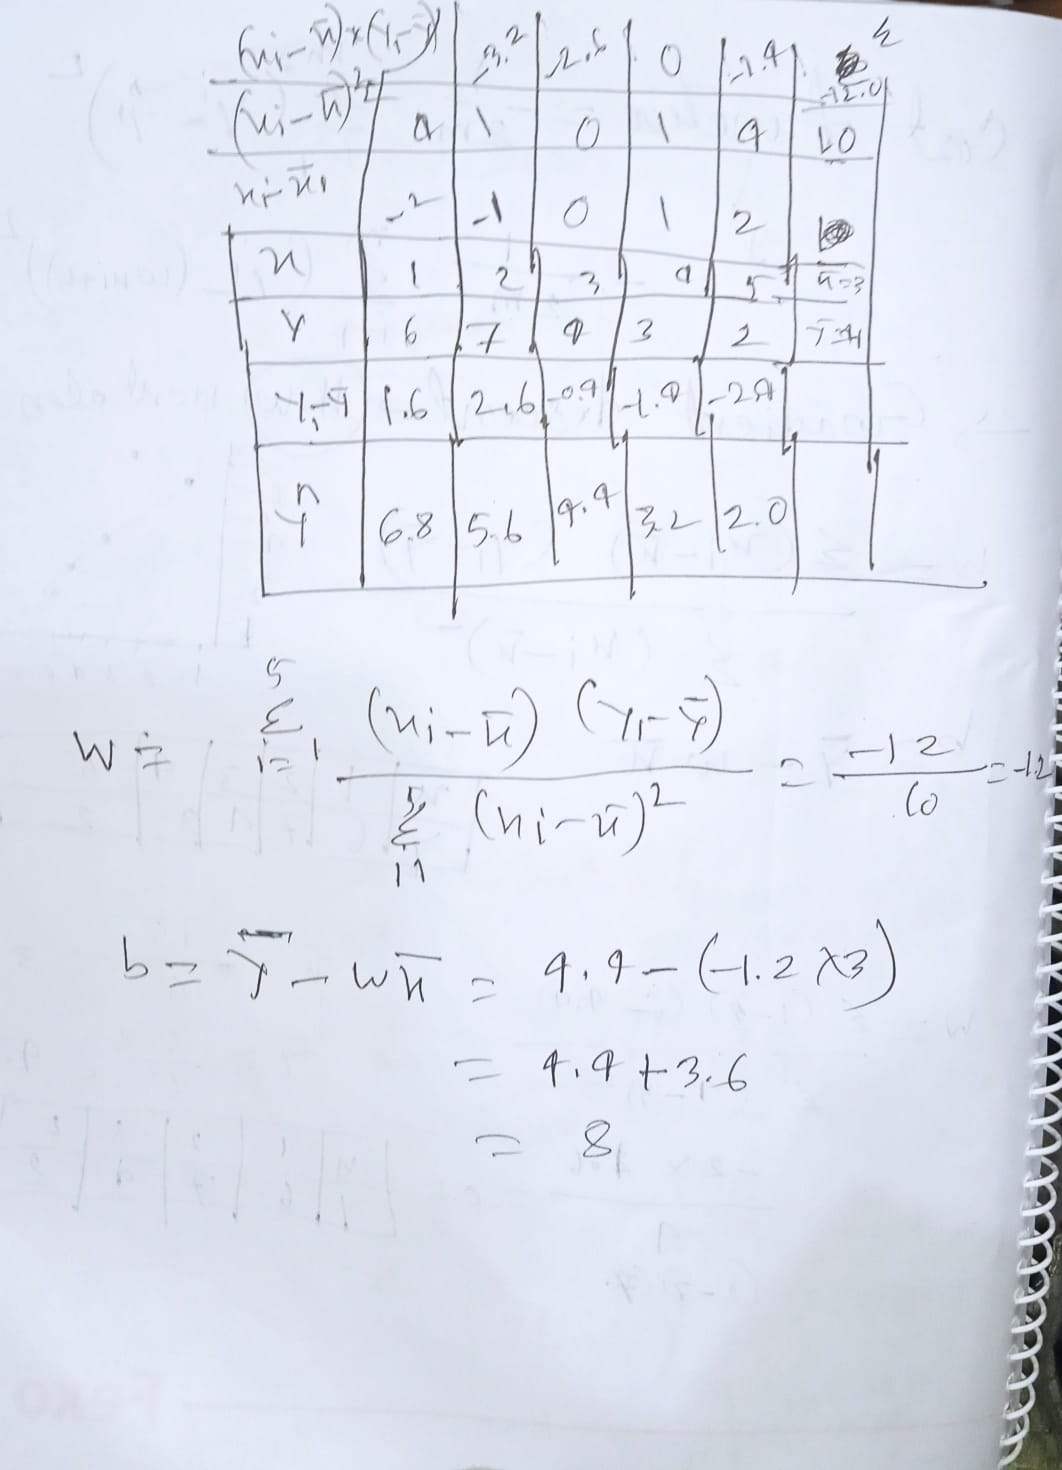 (xi-x̄)×(yi-ȳ) -3.2 -2.6 0 -1.4 Σ -12.0
(xi-x̄)² 4 1 0 1 4 10
xi-x̄ -2 -1 0 1 2
x 1 2 3 4 5 x̄=3
Y 6 7 4 3 2 ȳ=4.4
Yi-Ȳ 1.6 2.6 -0.4 -1.4 -2.4
Ŷ 6.8 5.6 4.4 3.2 2.0
w = 5 Σ i=1 (xi-x̄) (yi-ȳ) / 5 Σ i=1 (xi-x̄)² = -12 / 10 = -1.2
b = ȳ - wx̄ = 4.4 - (-1.2 ×3)
= 4.4 + 3.6
= 8